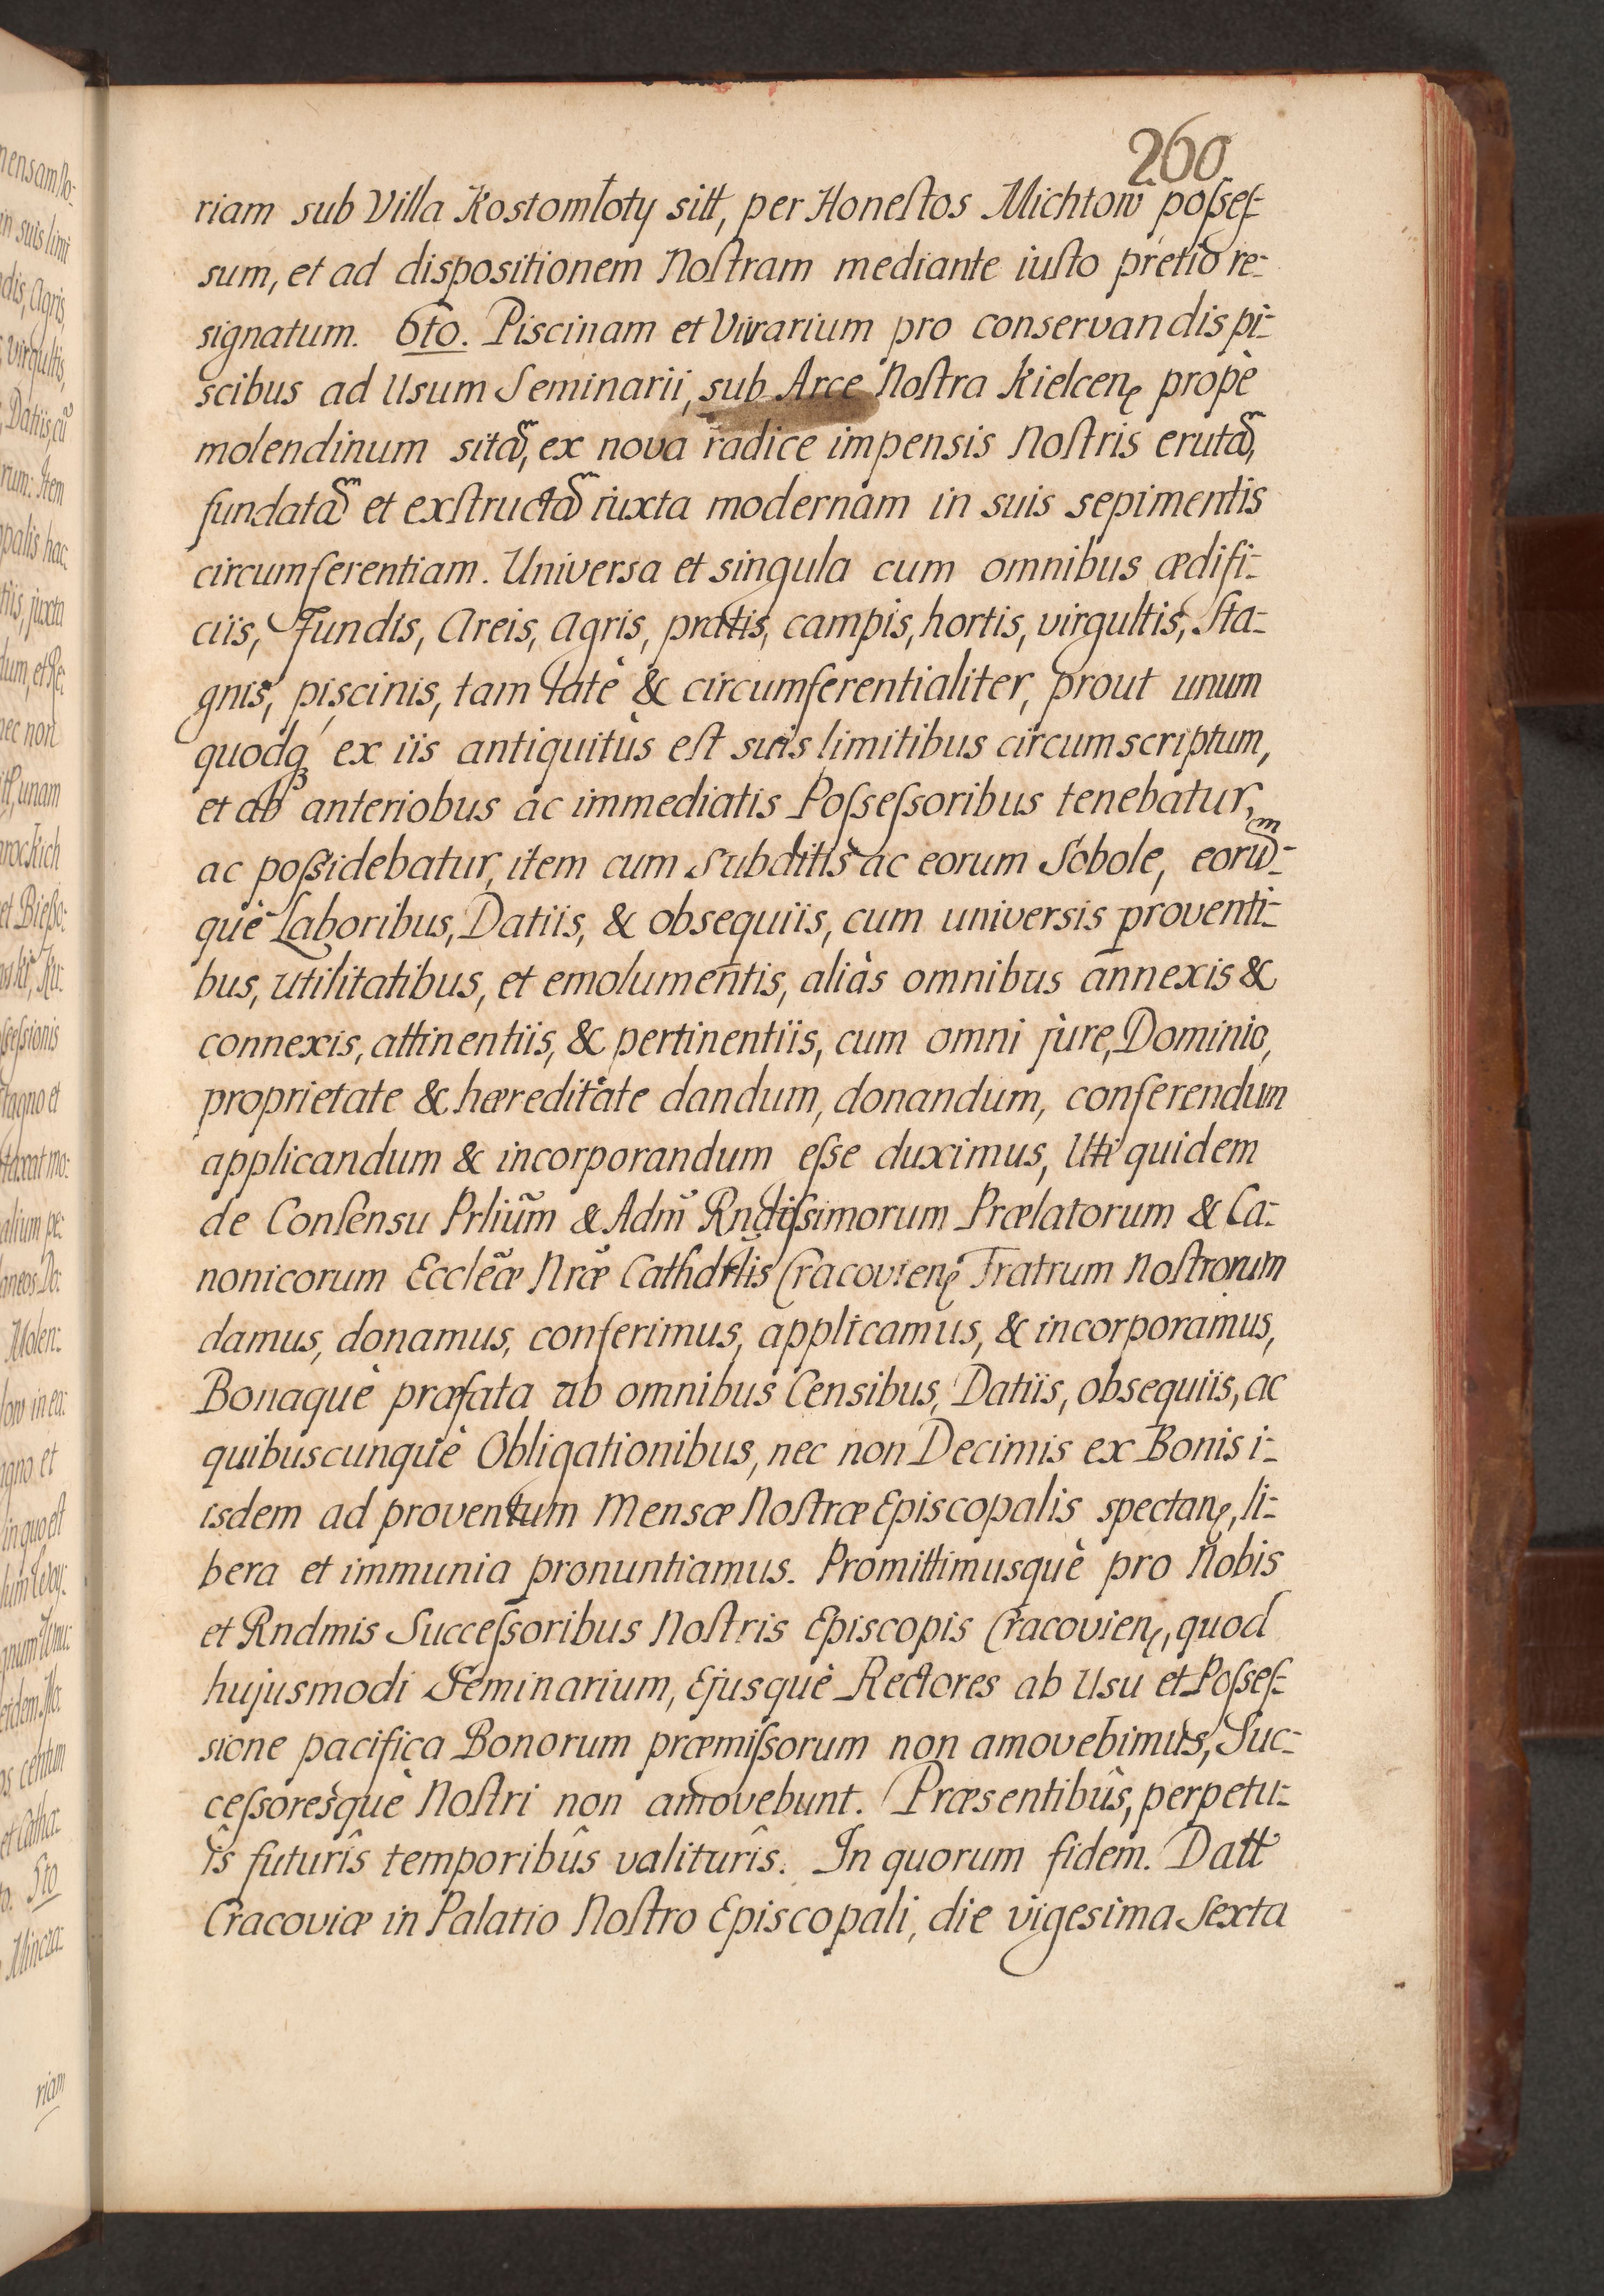 260
riam sub Villa Kostomłoty sitt, per Honeſtos Michtow poſseſ-
sum, et ad dispositionem Noſtram mediante iuſto pretio re-
signatum. 6to. Piscinam et Vivarium pro conservandis pi-
scibus ad Usum Seminarii, sub Arce Noſtra Kielcenę propè
molendinum sitam̃, ex nova radice impensis Noſtris erutam̃,
fundatam̃ et exſtructam̃ iuxta modernam in suis sepimentis
circumferentiam. Universa et singula cum omnibus ædifi-
ciis, Fundis, Areis, Agris, pratis, campis, hortis, virgultis, Sta-
gnis, piscinis, tam latè & circumferentialiter, prout unum
quodq́ȝ ex iis antiquitùs eſt suis limitibus circumscriptum,
et ab anteriobus ac immediatis Poſseſsoribus tenebatur,
ac poſsidebatur, item cum Subditis ac eorum Sobole, eorum̃-
què Laboribus, Datiis, & obsequiis, cum universis proventi-
bus, utilitatibus, et emolumentis, aliàs omnibus annexis &
connexis, attinentiis, & pertinentiis, cum omni jure, Dominio,
proprietate & hæreditate dandum, donandum, conferendum
applicandum & incorporandum eſse duximus, Uti quidem
de Conſensu Prliũm & Adm̃ Rndiſsimorum Prælatorum & Ca-
nonicorum Eccleæ̃ Nræ̃ Cathdrlis̃ Cracovienę Fratrum Noſtrorum
damus, donamus, conferimus, applicamus, & incorporamus,
Bonaquè præfata ab omnibus Censibus, Datiis, obsequiis, ac
quibuscunquè Obligationibus, nec non Decimis ex Bonis i-
isdem ad proventum Mensæ Noſtræ Episcopalis spectanę, li-
bera et immunia pronuntiamus. Promittimusquè pro Nobis
et Rndmis Succeſsoribus Noſtris Episcopis Cracovienę, quod
hujusmodi Seminarium, Ejusquè Rectores ab Usu et Poſseſ-
sione pacifica Bonorum præmiſsorum non amovebimus, Suc-
ceſsoresquè Noſtri non amovebunt. Præsentibûs, perpetu-
îs futurîs temporibûs valiturîs. In quorum fidem. Datt
Cracoviæ in Palatio Noſtro Episcopali, die vigesima Sexta